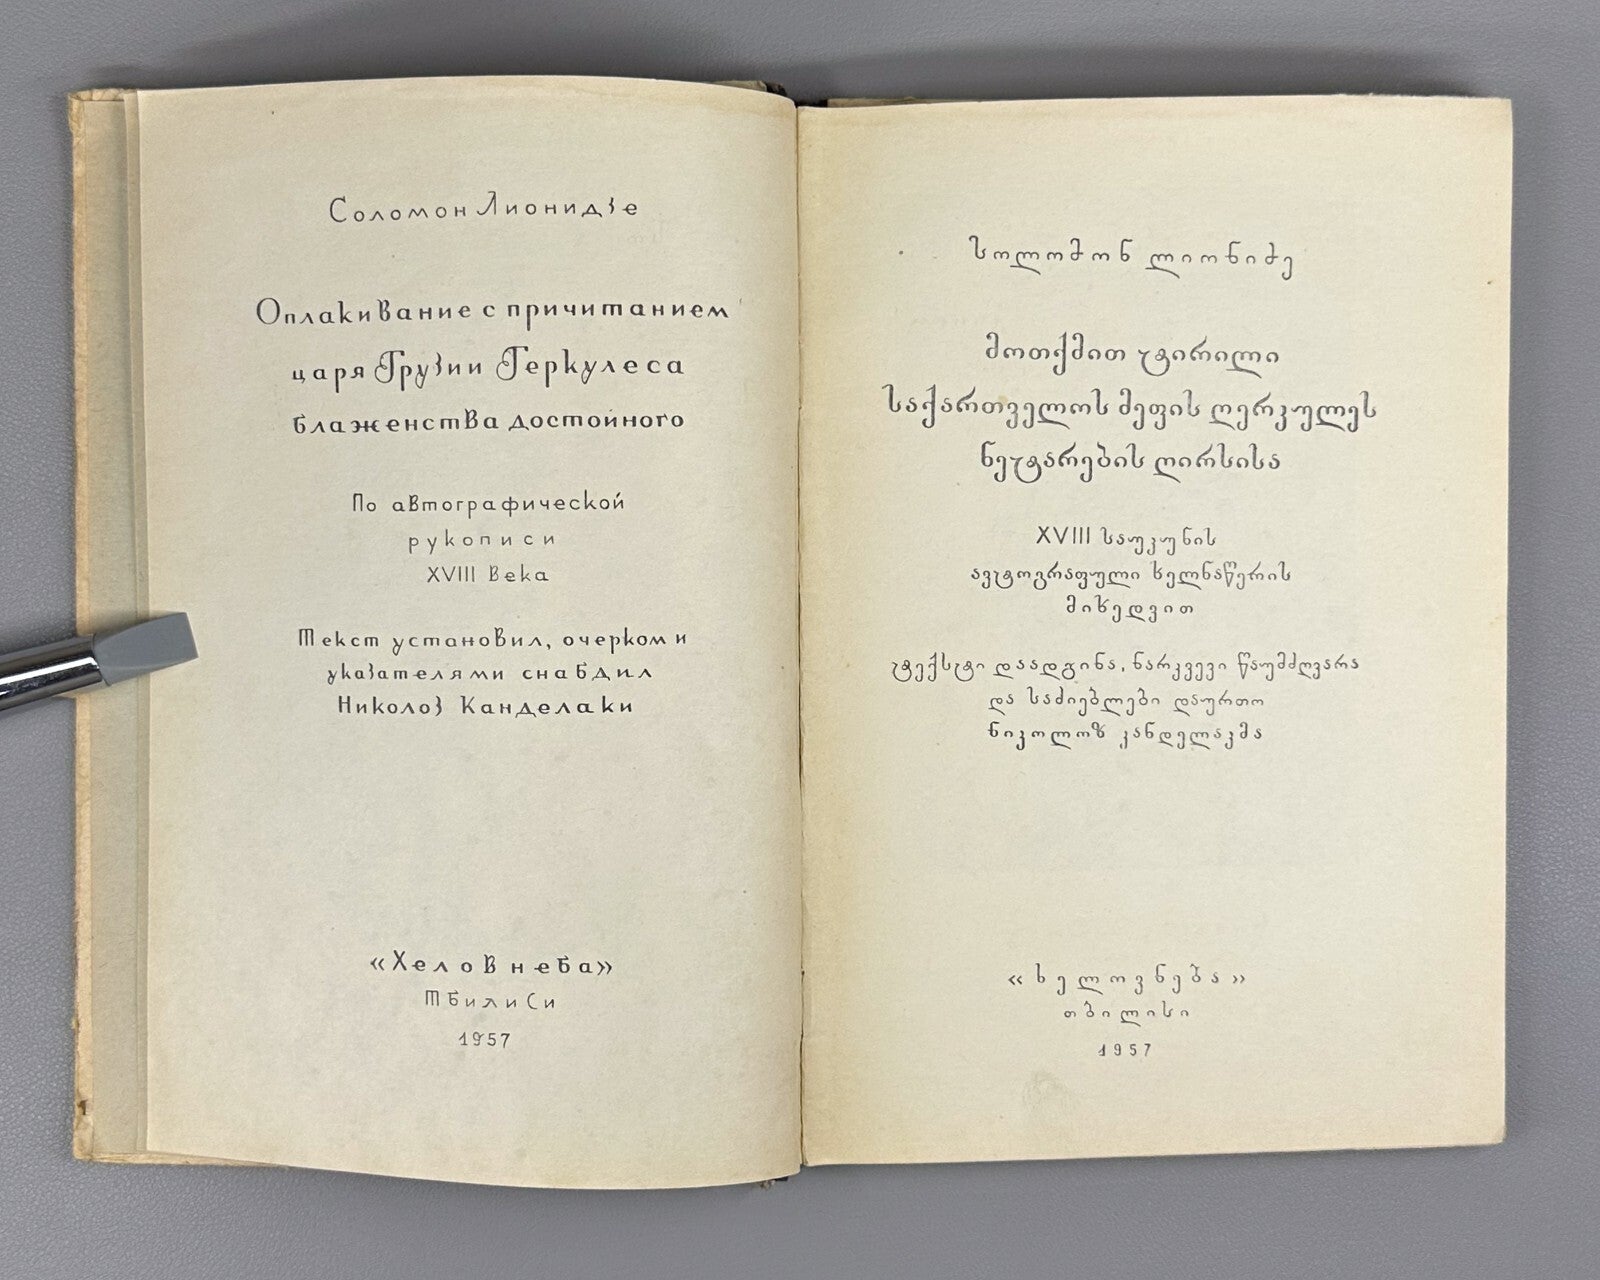 Соломон Лионидзе
Оплакивание с причитанием
царя Грузии Геркулеса
блаженства достойного
По автографической
рукописи
XVIII века
Текст установил, очерком и
указателями снабдил
Николоз Канделаки
«Хеловнеба»
Тбилиси
1957
სოლომონ ლიონიძე
მოთქმით ტირილი
საქართველოს მეფის ღერკულეს
ნეტარების ღირსისა
XVIII საუკუნის
ავტოგრაფული ხელნაწერის
მიხედვით
ტექსტი დაადგინა, ნარკვევი წაუმძღვარა
და საძიებლები დაურთო
ნიკოლოზ კანდელაკმა
«ხელოვნება»
თბილისი
1957